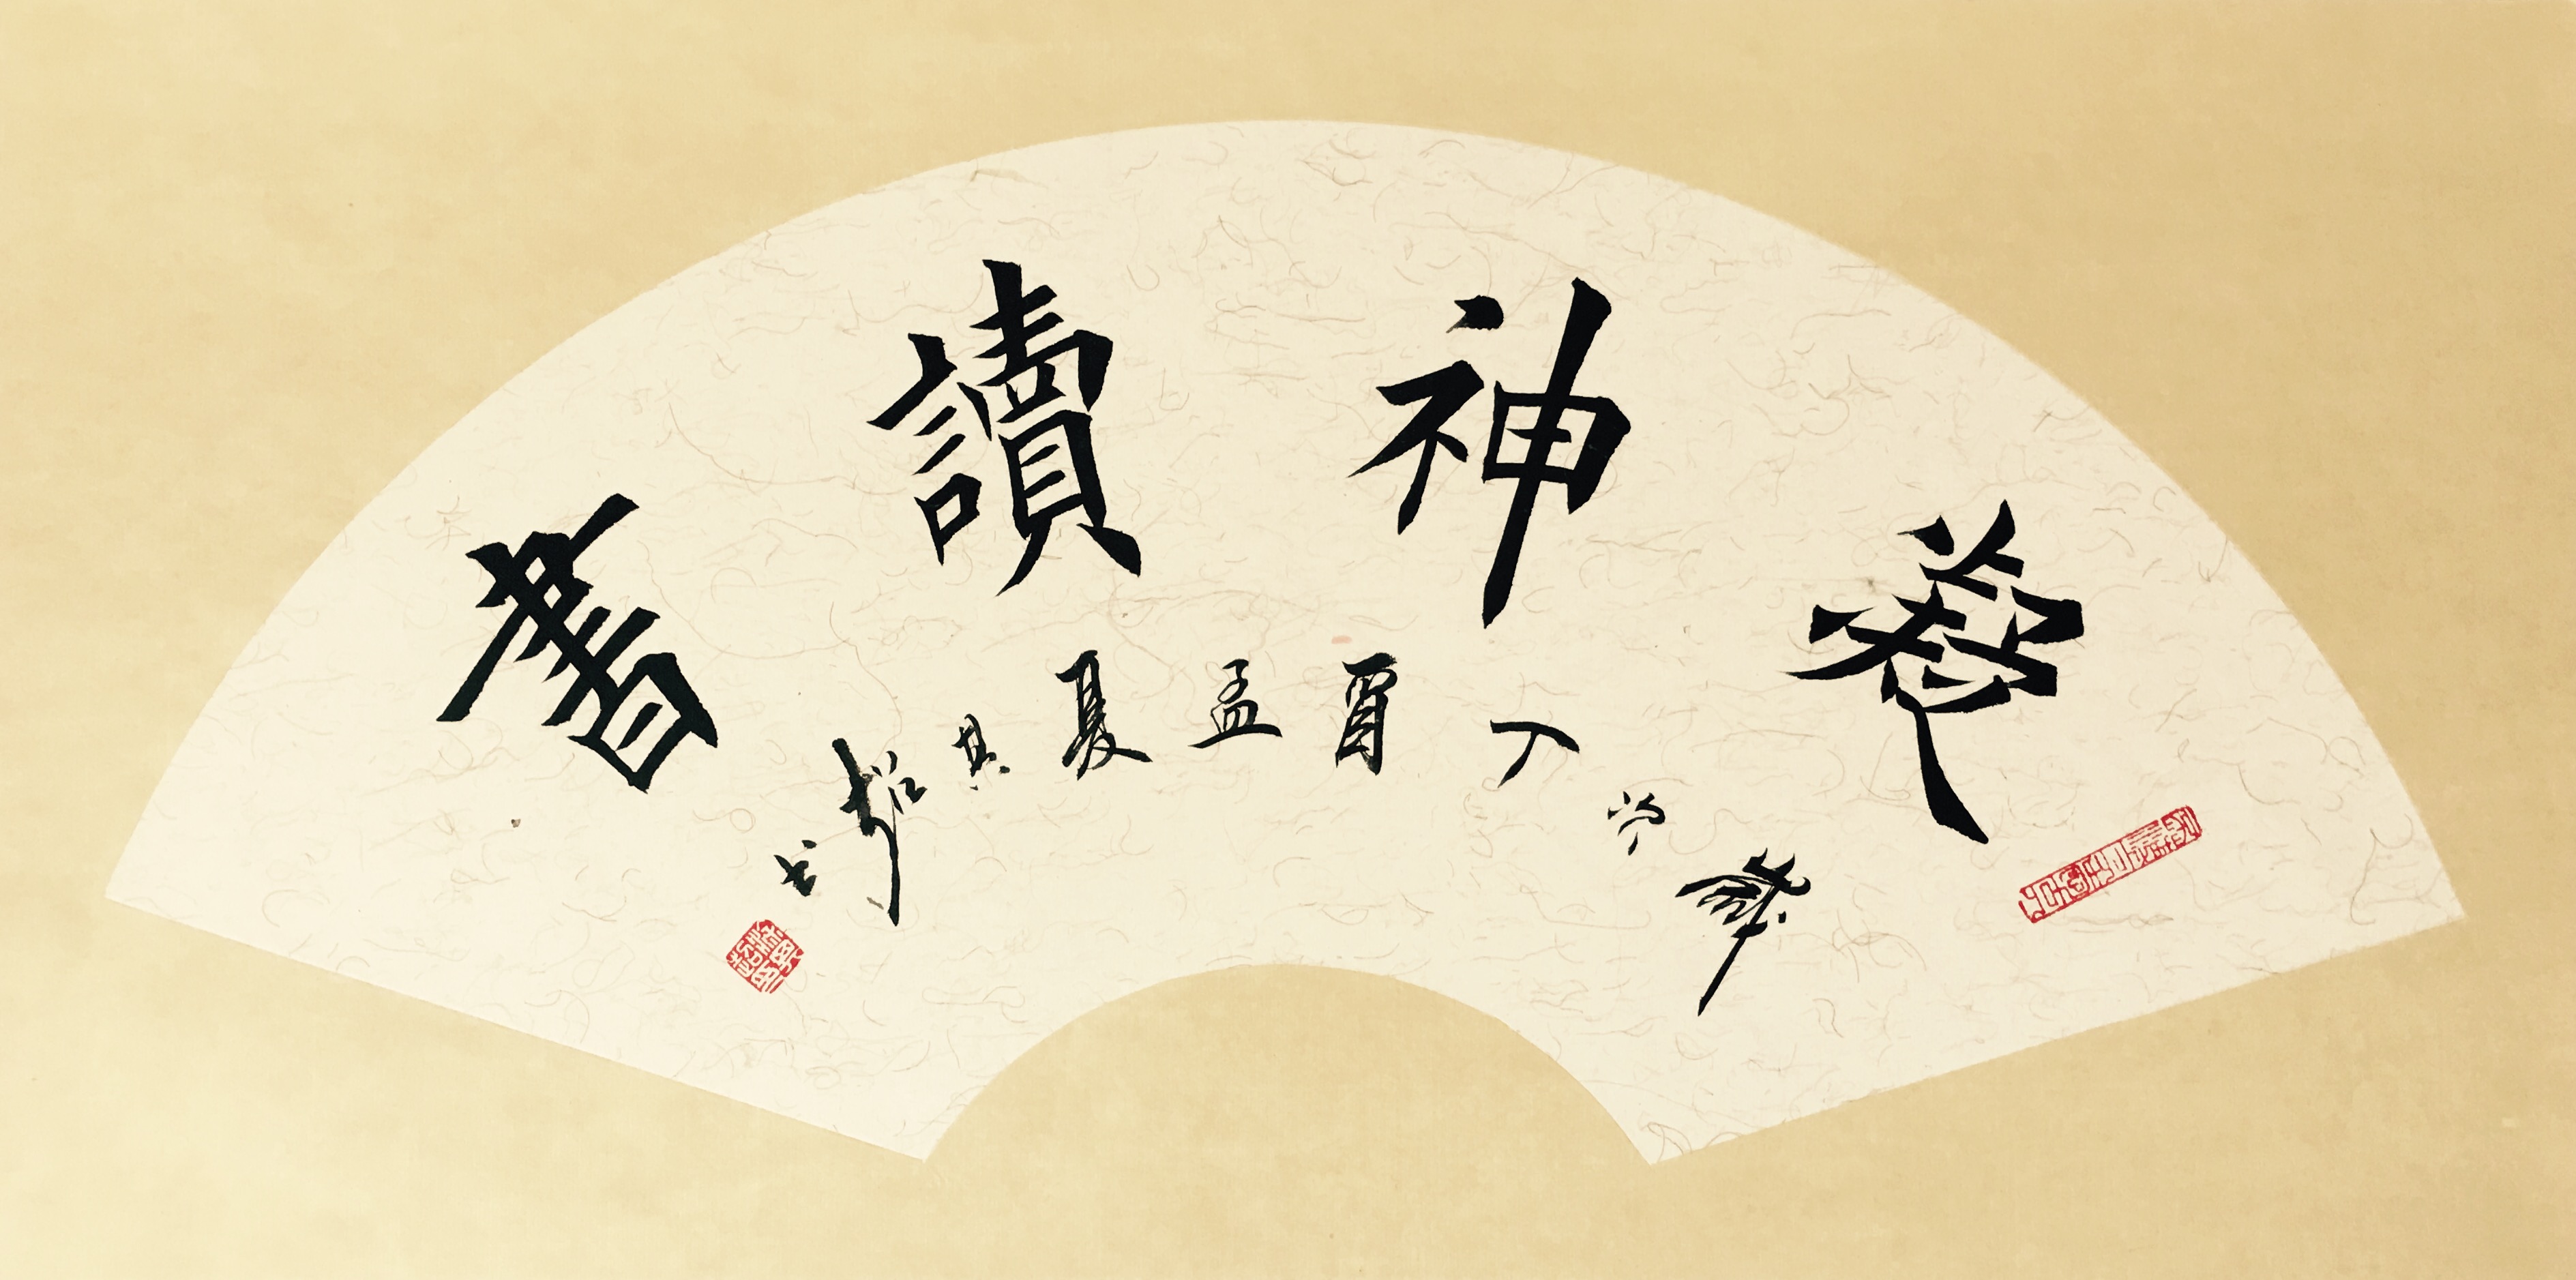 養神讀書
歲次丁酉孟夏其書